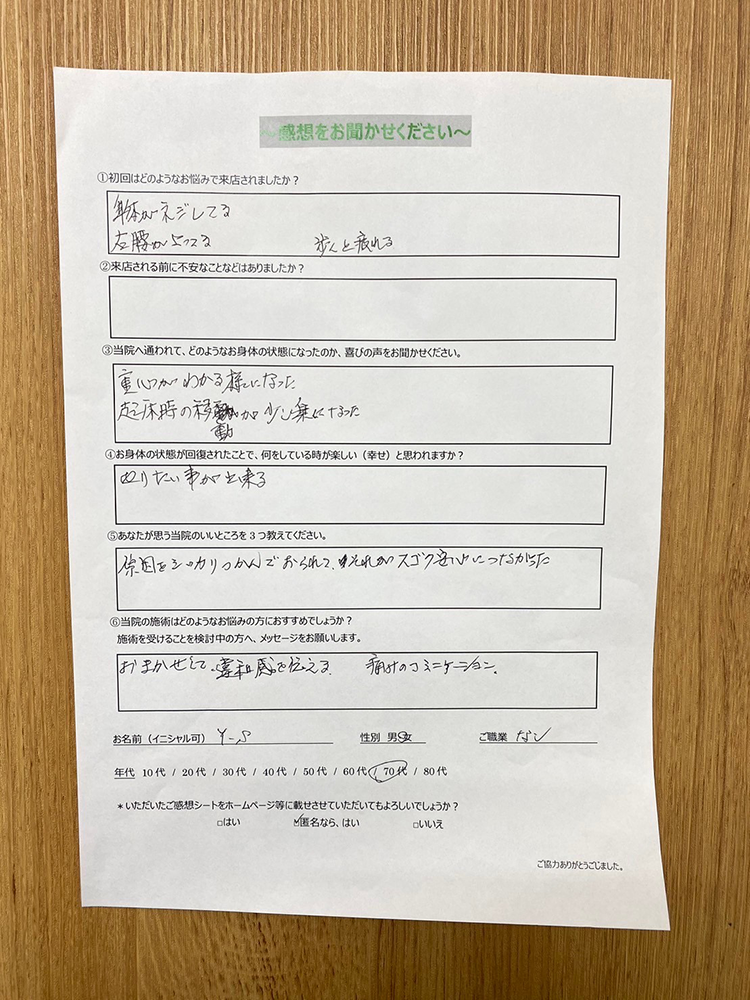 ～感想をお聞かせください～
①初回はどのようなお悩みで来店されましたか？
身体がネジレてる
左腰が立ってる 歩くと疲れる
②来店される前に不安なことなどはありましたか？
③当院へ通われて、どのようなお身体の状態になったのか、喜びの声をお聞かせください。
重心がわかる様になった
起床時の移動が少し楽になった
④お身体の状態が回復されたことで、何をしている時が楽しい（幸せ）と思われますか？
やりたい事が出来る
⑤あなたが思う当院のいいところを３つ教えてください。
原因をシッカリつかんでおられて、それがスゴク安心につながった
⑥当院の施術はどのようなお悩みの方におすすめでしょうか？
施術を受けることを検討中の方へ、メッセージをお願いします。
おまかせして、違和感を伝える コミニケーション。
お名前（イニシャル可） Y-S 性別 男・女 ご職業 なし
年代 10代 / 20代 / 30代 / 40代 / 50代 / 60代 / 70代 / 80代
＊いただいたご感想シートをホームページ等に載せさせていただいてもよろしいでしょうか？
□はい ☑匿名なら、はい □いいえ
ご協力ありがとうごじました。